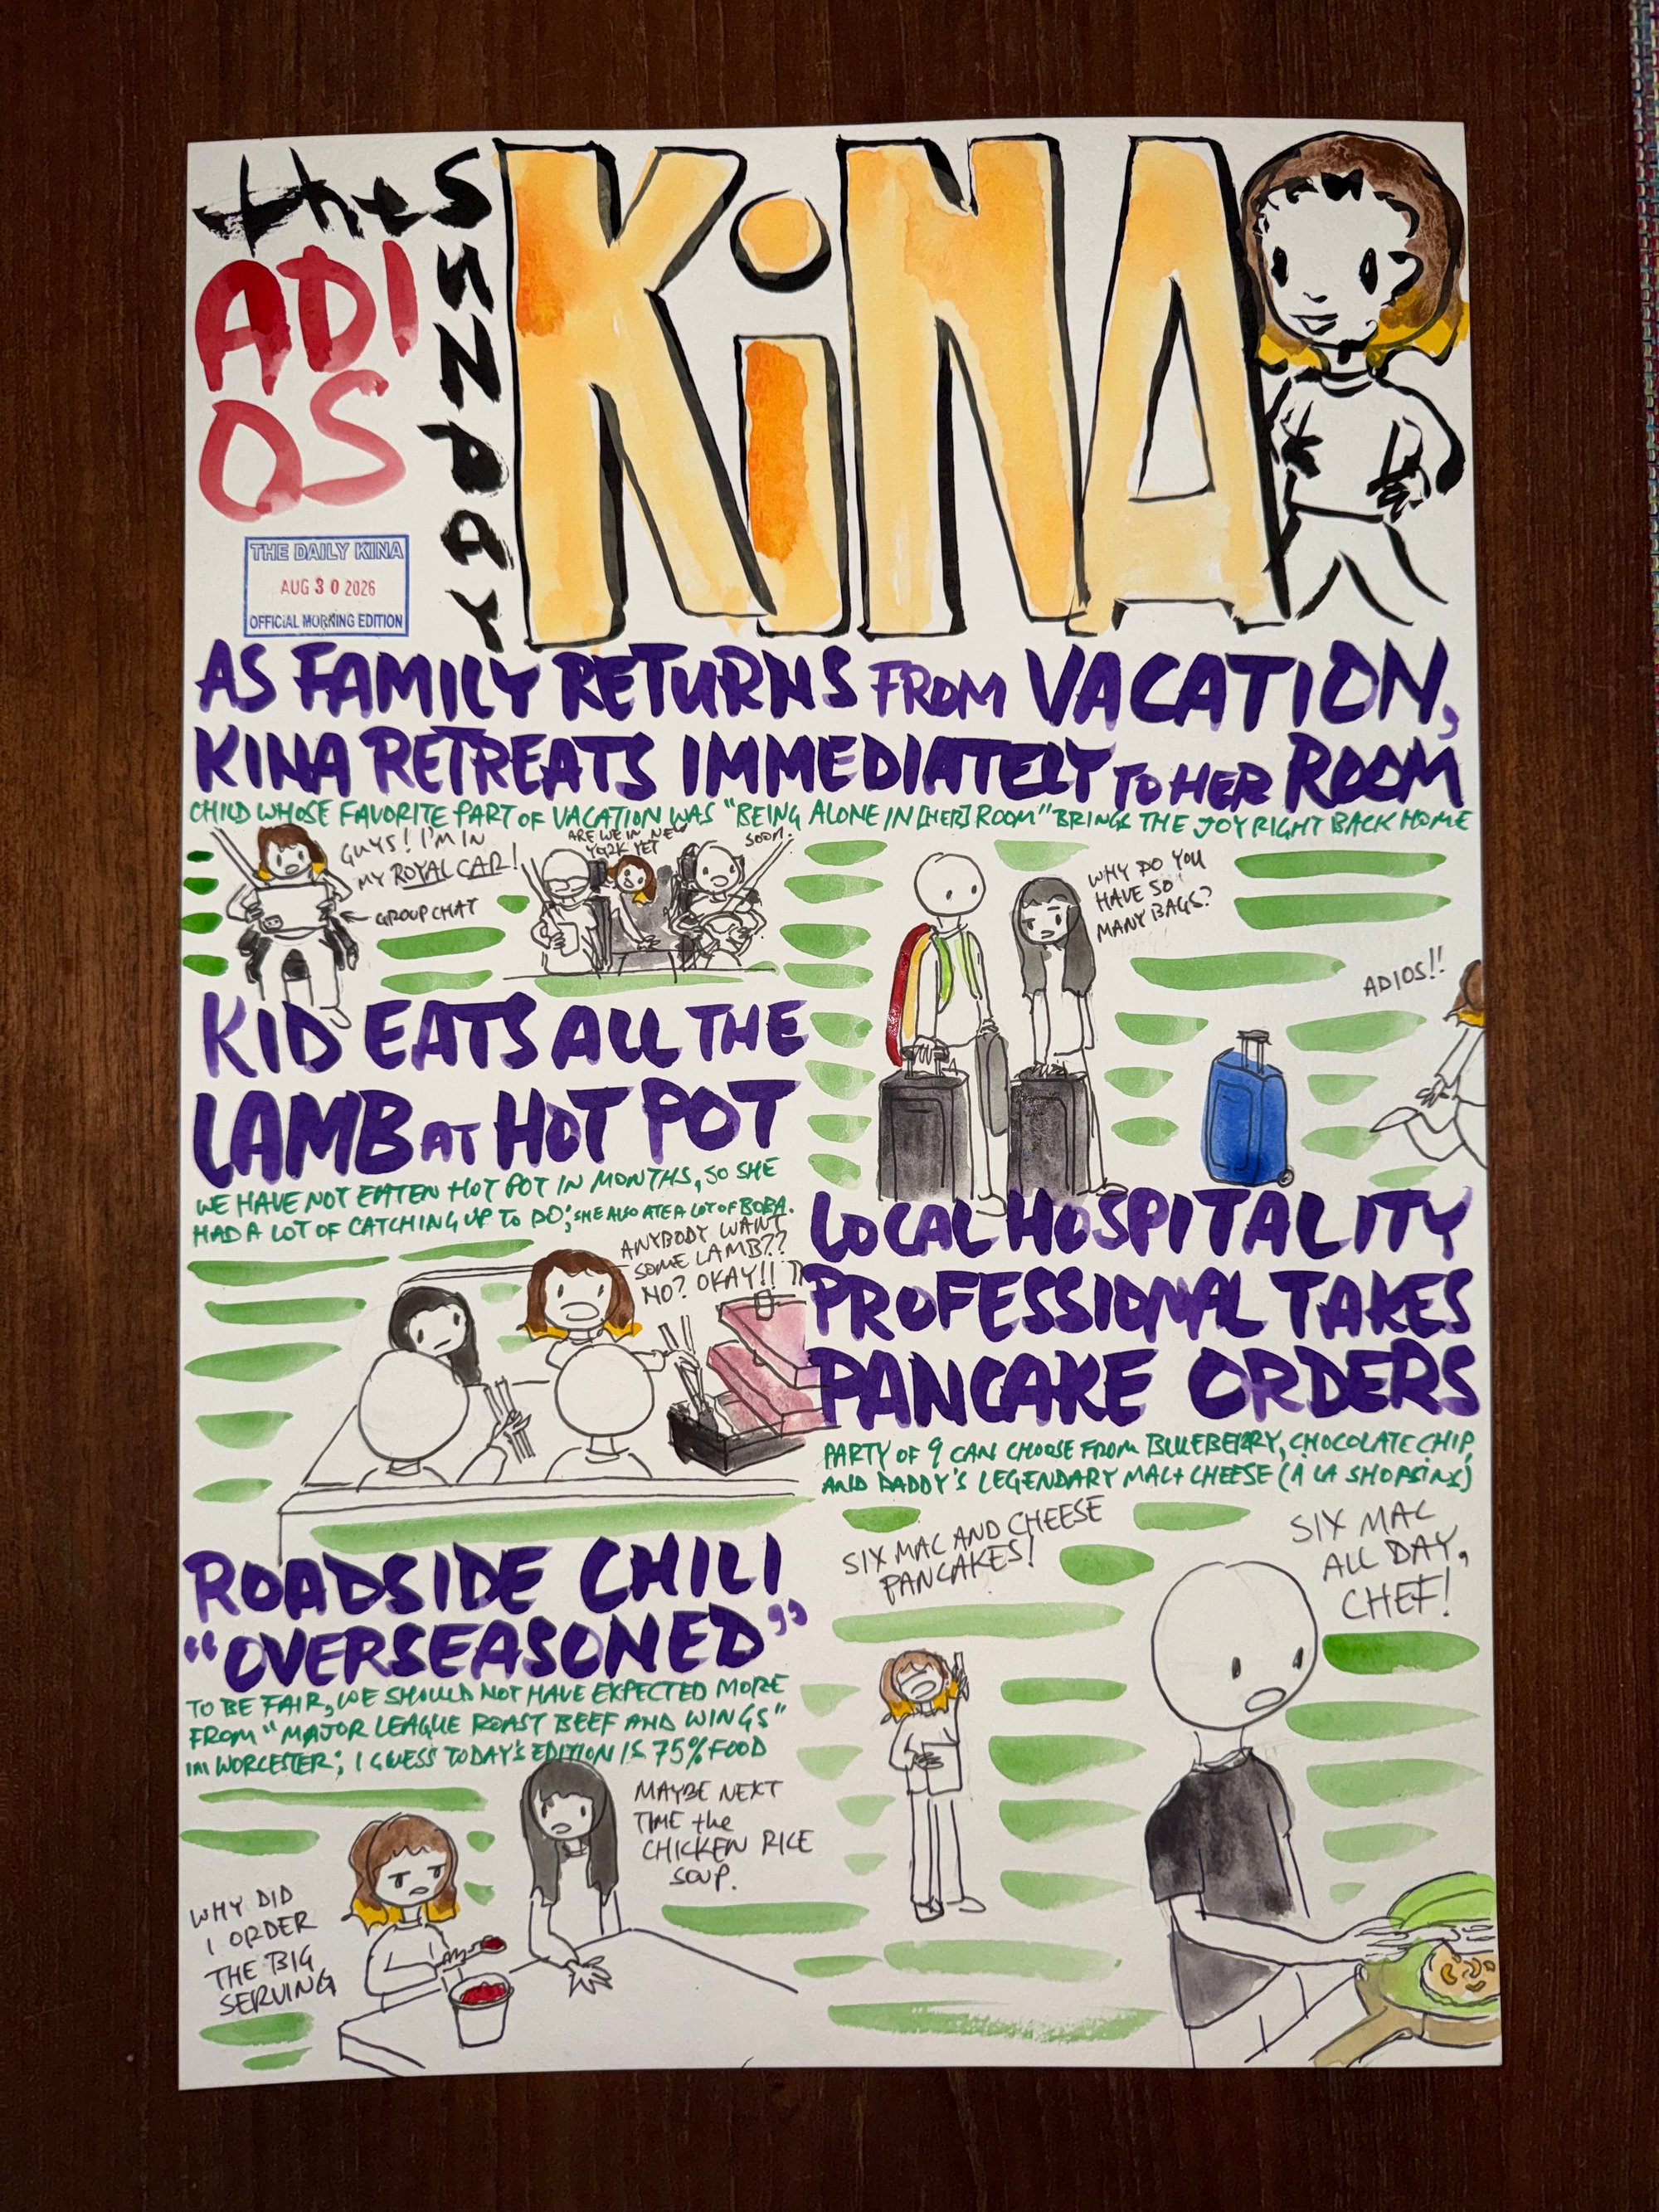 the
SUNDAY
ADI
OS
KiNA
THE DAILY KINA
AUG 30 2026
OFFICIAL MORNING EDITION
AS FAMILY RETURNS FROM VACATION,
KINA RETREATS IMMEDIATELY TO HER ROOM
CHILD WHOSE FAVORITE PART OF VACATION WAS "BEING ALONE IN [HER] ROOM" BRINGS THE JOY RIGHT BACK HOME
GUYS! I'M IN
MY ROYAL CAR!
GROUP CHAT
ARE WE IN NEW
YORK YET
SOON.
WHY DO YOU
HAVE SO
MANY BAGS?
ADIOS!!
KID EATS ALL THE
LAMB AT HOT POT
WE HAVE NOT EATEN HOT POT IN MONTHS, SO SHE
HAD A LOT OF CATCHING UP TO DO; SHE ALSO ATE A LOT OF BOBA.
ANYBODY WANT
SOME LAMB??
NO? OKAY!!
LOCAL HOSPITALITY
PROFESSIONAL TAKES
PANCAKE ORDERS
PARTY OF 9 CAN CHOOSE FROM BLUEBERRY, CHOCOLATE CHIP,
AND DADDY'S LEGENDARY MAC + CHEESE (À LA SHOPSINS)
SIX MAC AND CHEESE
PANCAKES!
SIX MAC
ALL DAY,
CHEF!
ROADSIDE CHILI
"OVERSEASONED"
TO BE FAIR, WE SHOULD NOT HAVE EXPECTED MORE
FROM "MAJOR LEAGUE ROAST BEEF AND WINGS"
IN WORCESTER; I GUESS TODAY'S EDITION IS 75% FOOD
MAYBE NEXT
TIME the
CHICKEN RICE
SOUP.
WHY DID
I ORDER
THE BIG
SERVING